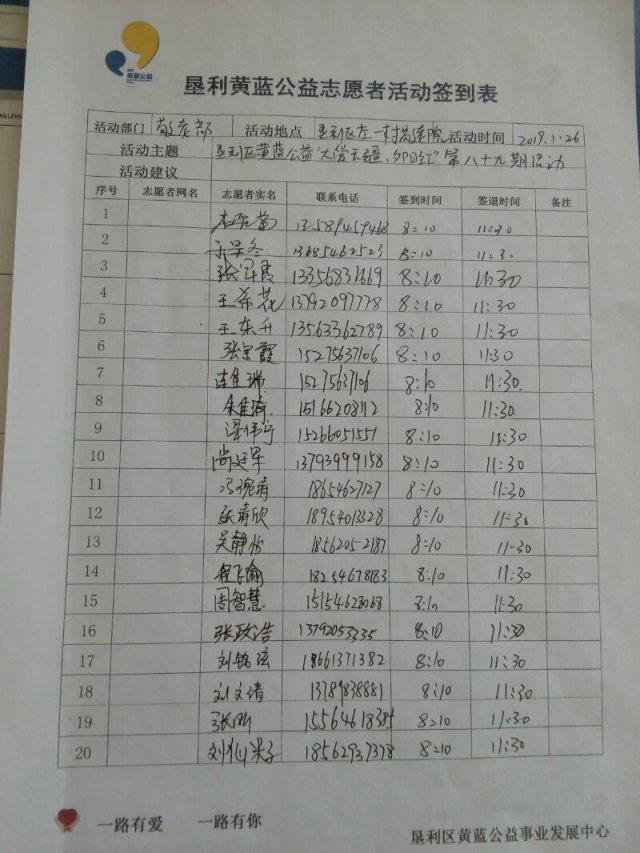 黄蓝公益
垦利黄蓝公益志愿者活动签到表
活动部门 敬老部 活动地点 垦利区左一村敬老院 活动时间 2019.1.26
活动主题 垦利区黄蓝公益"大爱无疆,夕阳红"第八十九期活动
活动建议
序号 志愿者网名 志愿者实名 联系电话 签到时间 签退时间 备注
1 13589459468 8:10 11:30
2 13685462523 8:10 11:30
3 13356831669 8:10 11:30
4 王希花 13792097778 8:10 11:30
5 王东升 13563362789 8:10 11:30
6 张宗霞 15275637106 8:10 11:30
7 15275637106 8:10 11:30
8 15166203112 8:10 11:30
9 15266051551 8:10 11:30
10 尚延军 13793999158 8:10 11:30
11 18654627127 8:10 11:30
12 张靖欣 18954013328 8:10 11:30
13 吴静怡 18562052187 8:10 11:30
14 18254678183 8:10 11:30
15 周智慧 15154628068 8:10 11:30
16 张政浩 13792053335 8:10 11:30
17 刘铭泫 18661371382 8:10 11:30
18 刘文清 13789838881 8:10 11:30
19 15564618385 8:10 11:30
20 18562937378 8:10 11:30
一路有爱 一路有你
垦利区黄蓝公益事业发展中心